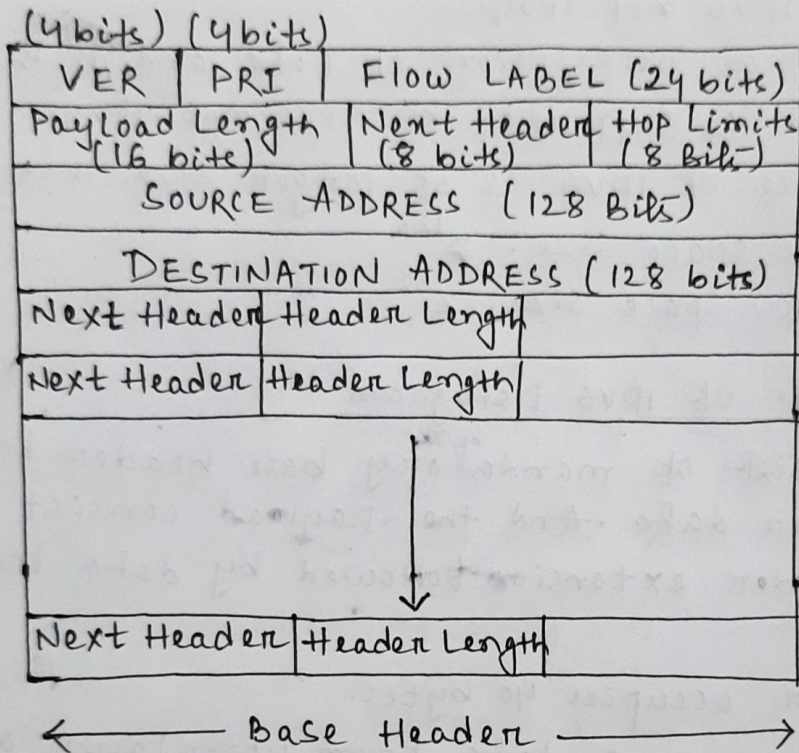 (4 bits) (4 bits)
VER PRI Flow LABEL (24 bits)
Payload Length Next Header Hop Limits
(16 bits) (8 bits) (8 Bits)
SOURCE ADDRESS (128 Bits)
DESTINATION ADDRESS (128 bits)
Next Header Header Length
Next Header Header Length
Next Header Header Length
Base Header